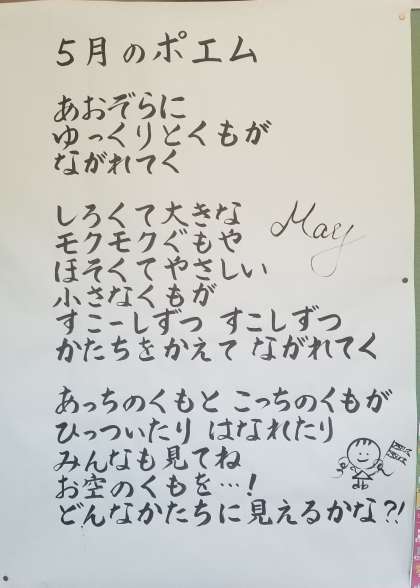 5月のポエム
あおぞらに
ゆっくりとくもが
ながれてく
しろくて大きな
モクモクぐもや
ほそくてやさしい
小さなくもが
すこーしずつ すこしずつ
かたちをかえて ながれてく
May
あっちのくもと こっちのくもが
ひっついたり はなれたり
みんなも見てね
お空のくもを…!
どんなかたちに見えるかな?!